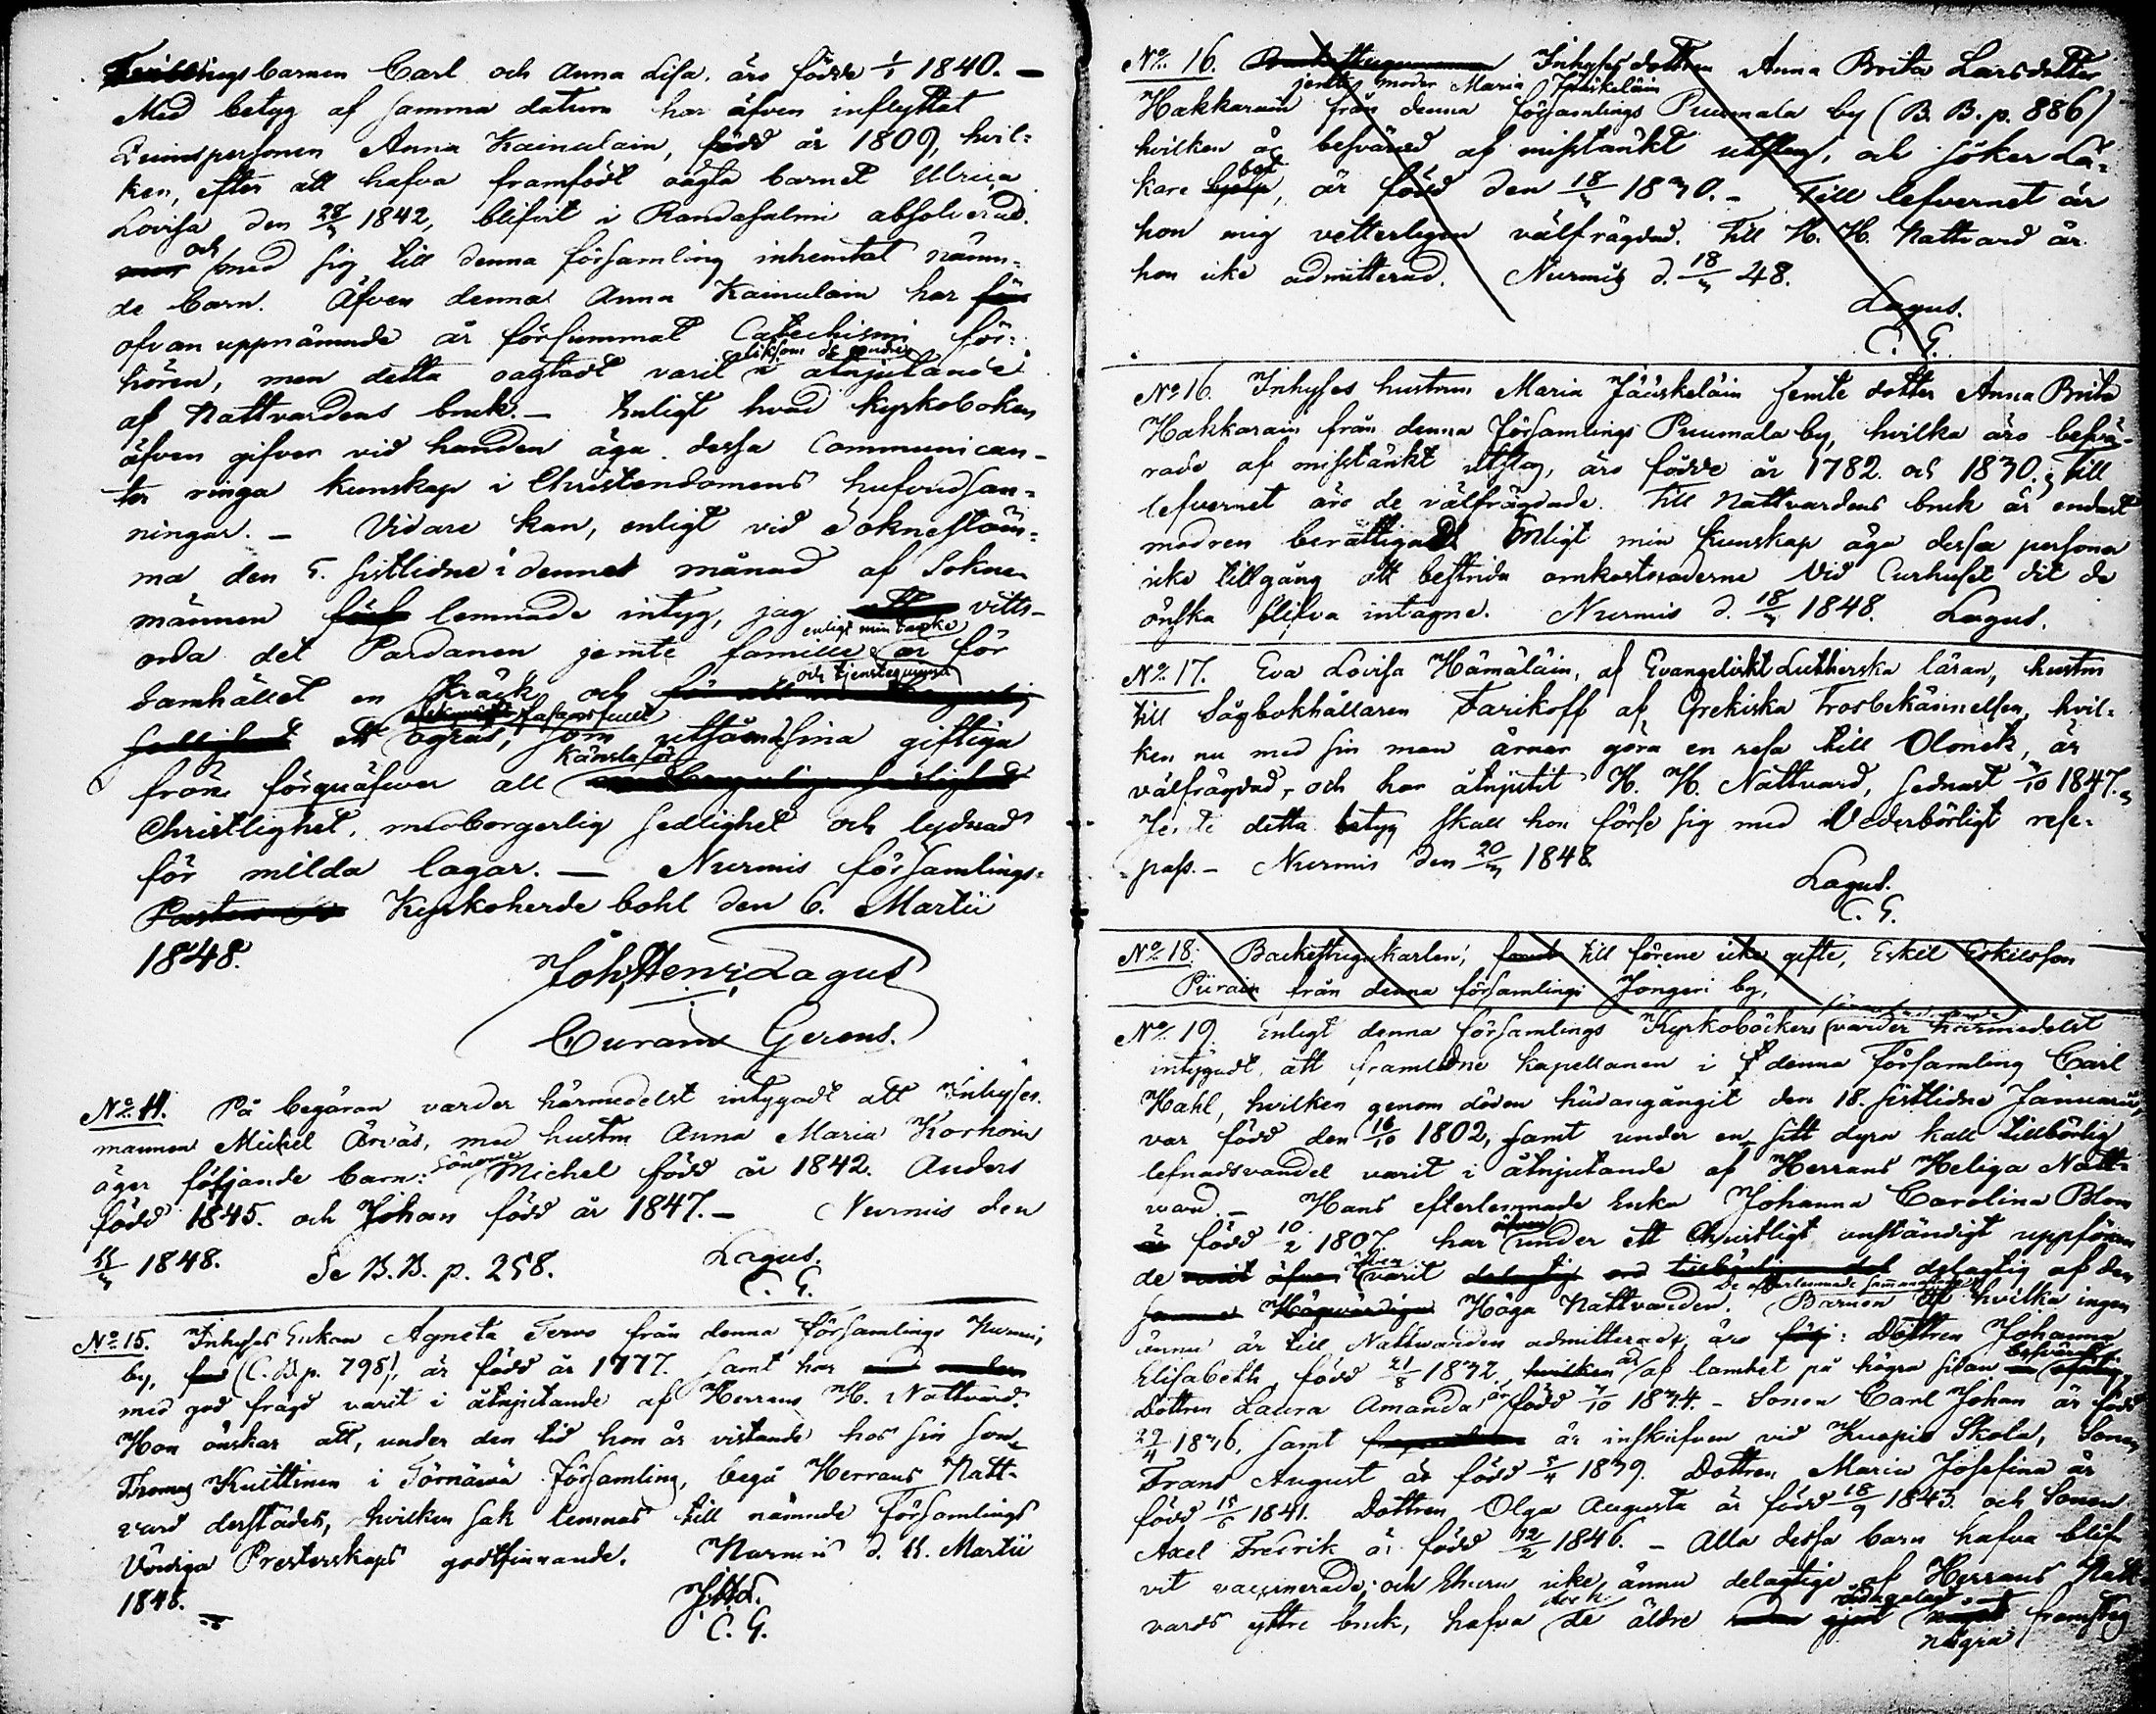 Tvillingsbarnen Carl och Anna Lisa, äro födde 1/1 1840. —
Med betyg af samma datum har äfven inflyttat
Qvinspersonen Anna Kainulain, född år 1809, hvil=
ken, efter att hafva framfödt oägta barnet Ulrica
Lovisa den 28/3 1842, blifvit i Randasalmi absolverad.
och med sig till denna församling inhemtat nämn=
de barn. Äfven denna Anna Kainulain har
ofvan uppnämnde år försummat Catechismi för=
liksom de andra
hören, men detta oagtadt varit i åtnjutande
af Nattvardens bruk. — Enligt hvad Kyrkoboken
äfven gifver vid handen äga dessa Communican=
ter ringa kunskap i Christendomens hufvudsan=
ningar. — Vidare kan, enligt vid Soknestäm=
ma den 5. sistlidne i denne månad af Sokne
männen lemnade intyg, jag vitts=
enligt min tanke
orda det Pardanen jemte famille är för
och tjenstequinna
Samhället en skräck och
ett ogräs, som utsående sina giftiga
känsla för
frön förquäfver all
Christlighet, medborgerlig sedlighet och lydnad
för milda lagar. — Nurmis församlings=
Kyrkoherde bohl den 6. Martii
1848.
Joh. Henr. Lagus
Curam Gerens.
No 14. På begäran varder härmedelst intygadt att Inhyses
mannen Michel Ärväs, med hustru Anna Maria Korhoin
äger följande barn: Sönerne Michel född år 1842. Anders
född 1845. och Johan född år 1847. — Nurmis den
11/3 1848. Se B.B. p. 258. Lagus.
C. G.
No 15. Inhyses Enkan Agneta Tervo från denna församlings Nurmi,
by, (C.B. p. 798), är född år 1777. samt har
med god frägd varit i åtnjutande af Herrans H. Nattvard.
Hon önskar att, under den tid hon är vistande hos sin son
Thomas Kuittinen i Törnävä församling, begå Herrans Natt=
vard derstädes, hvilken sak lemnas till nämnde församlings
Vördiga Presterskaps godtfinnande. Nurmis d. 11. Martii
1848.
J.H.L.
C. G.
No 16. Inhyses dottren Anna Brita Larsdotter
jemte moder Maria Jääskeläin
Hakkarain från denna församlings Puumala by (B. B. p. 886)
hvilken är besvärad af misstänkt utslag, och söker Lä=
kare bot, är född den 18/3 1830. — Till lefvernet är
hon mig vetterligen välfrägdad. Till H. H. Nattvard är
hon icke admitterad. Nurmis d. 18/3 48.
Lagus.
C. G.
No 16. Inhyses hustrun Maria Jääskeläin jemte dotter Anna Brita
Hakkarain från denna församlings Puumala by, hvilka äro besvä=
rade af misstänkt utslag, äro födde år 1782 och 1830; Till
lefvernet äro de välfrägdade. Till Nattvardens bruk är endast
modren berättigad. Enligt min kunskap äga dessa personer
icke tillgång att bestrida omkostnaderne vid Curhuset dit de
önska blifva intagne. Nurmis d. 18/3 1848. Lagus.
No 17. Eva Lovisa Hämäläin, af Evangeliskt Lutherska läran, hustru
till Sågbokhållaren Farikoff af Grekiska Trosbekännelsen, hvil=
ken nu med sin man ärnar göra en resa till Olonetz, är
välfrägdad, och har åtnjutit H. H. Nattvard, sednast 3/10 1847.
Jemte detta betyg skall hon förse sig med Vederbörligt rese=
pass. — Nurmis den 20/3 1848.
Lagus.
C. G.
No 18. Backestugukarlen, till förene icke gifte, Eskil Eskilsson
Piirain från denna församlings Jongeri by,
No 19. Enligt denna församlings Kyrkoböcker varder härmedelst
intygadt, att framledne Kapellanen i denna församling Carl
Hahl, hvilken genom döden hädangångit den 18. sistlidne Januarii,
var född den 16/10 1802, samt under en sitt dyra kall tillbörlig
lefnadsvandel varit i åtnjutande af Herrans Heliga Natt=
vard. — Hans efterlemnade Enka Johanna Carolina Blom
född 10/2 1807. har äfven under ett Christligt anständigt uppföran
de varit delagtig af den
De efterlemnade
Höga Nattvarden. Barnen af hvilka ingen
ännu är till Nattvarden admitterad, äro: Dottren Johanna
Elisabeth, född 21/8 1832, af lamhet på högra sidan besvärad,
Dottren Laura Amanda är född 3/10 1834. — Sonen Carl Johan är född
29/4 1836, samt är inskrifven vid Kuopio Skola, Sonen
Frans August är född 5/4 1839. Dottren Maria Josefina är
född 15/6 1841. Dottren Olga Augusta är född 18/9 1843. och Sonen
Axel Fredrik är född 12/2 1846. — Alla dessa barn hafva blif=
vit vaccinerade; och Ehuru icke ännu delagtige af Herrans Natt=
vards yttre bruk, hafva dock de äldre några framsteg